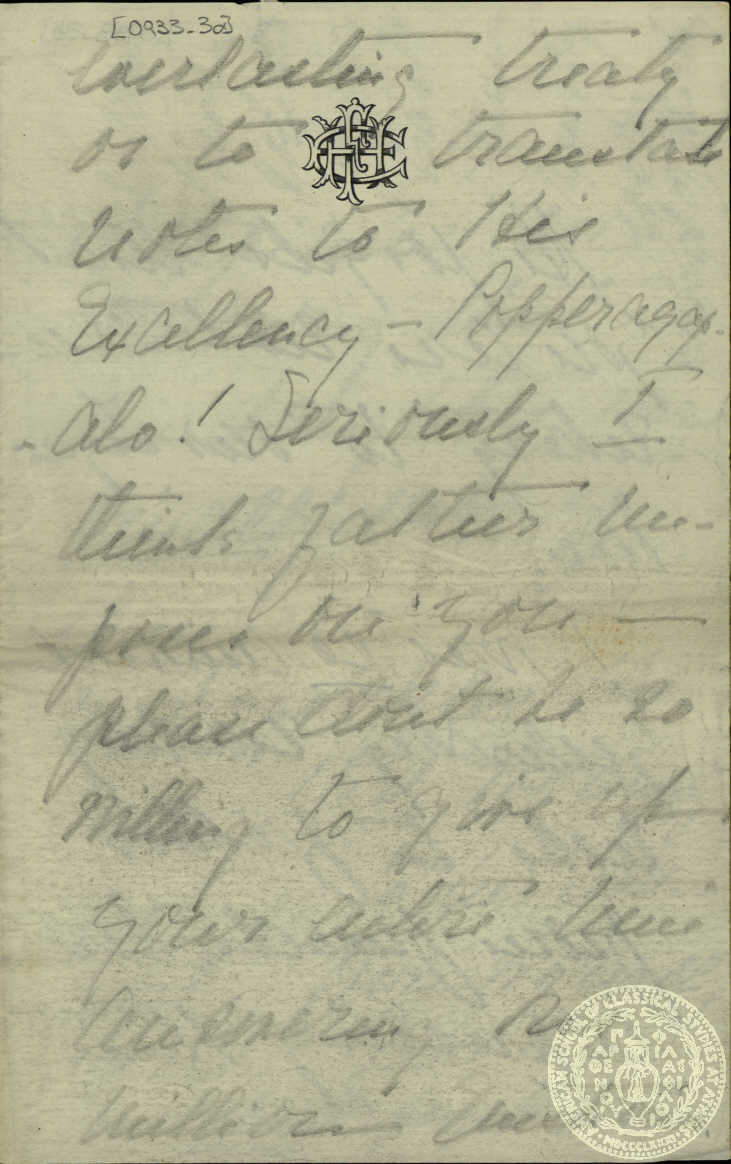 [0933-3d]
Everlasting treaty
or to translate
notes to His
Excellency — Popperagap-
-alo! Seriously I
think father im-
poses on you —
please don't be so
willing to give up
your entire time
answering
millions
AMERICAN SCHOOL OF CLASSICAL STUDIES AT ATHENS
MDCCCLXXXI